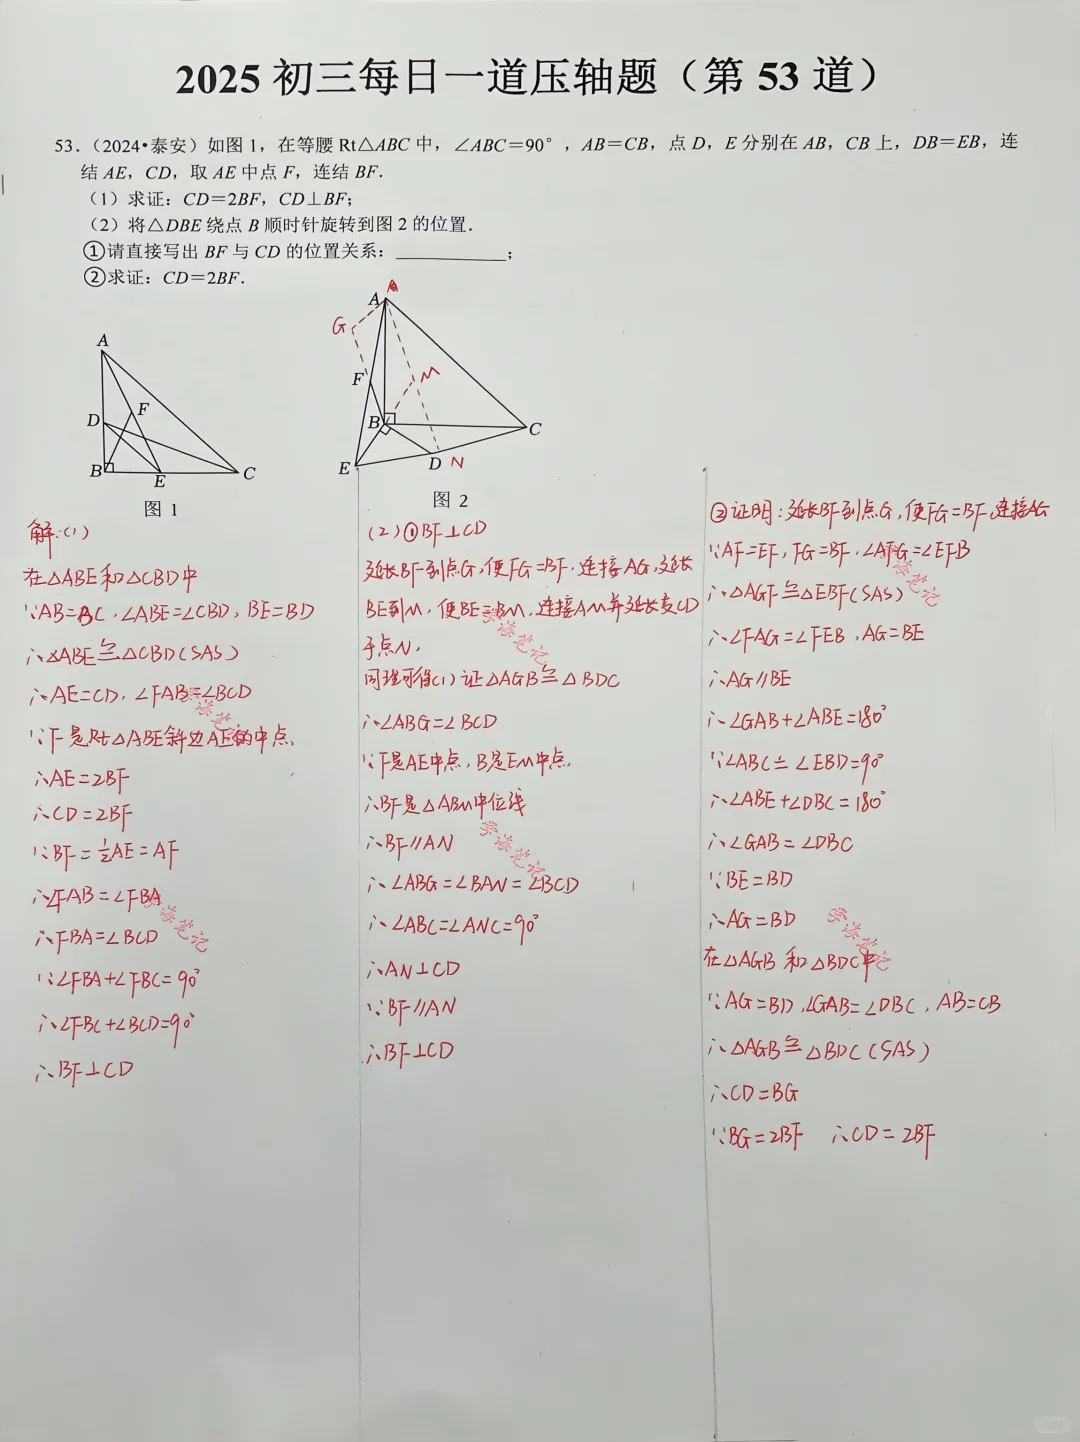 2025 初三每日一道压轴题（第 53 道）
53.（2024•泰安）如图 1，在等腰 Rt△ABC 中，∠ABC＝90°，AB＝CB，点 D，E 分别在 AB，CB 上，DB＝EB，连
结 AE，CD，取 AE 中点 F，连结 BF．
（1）求证：CD＝2BF，CD⊥BF；
（2）将△DBE 绕点 B 顺时针旋转到图 2 的位置．
①请直接写出 BF 与 CD 的位置关系：____________；
②求证：CD＝2BF．
A
D
F
B
E
C
图 1
A
A
G
F
M
B
C
E
D
N
图 2
解:(1)
在△ABE和△CBD中
∵AB=BC,∠ABE=∠CBD, BE=BD
∴△ABE≌△CBD(SAS)
∴AE=CD,∠FAB=∠BCD
∵F是Rt△ABE斜边AE的中点,
∴AE=2BF
∴CD=2BF
∵BF=½AE=AF
∴∠FAB=∠FBA
∴FBA=∠BCD
∵∠FBA+∠FBC=90°
∴∠FBC+∠BCD=90°
∴BF⊥CD
(2)①BF⊥CD
延长BF到点G,使FG=BF,连接AG,延长
BE到M,使BE=BM,连接AM并延长交CD
于点N,
同理可得(1)证△AGB≌△BDC
∴∠ABG=∠BCD
∵F是AE中点,B是EM中点,
∴BF是△ABM中位线
∴BF∥AN
∴∠ABG=∠BAN=∠BCD
∴∠ABC=∠ANC=90°
∴AN⊥CD
∵BF∥AN
∴BF⊥CD
②证明:延长BF到点G,使FG=BF,连接AG
∵AF=EF,FG=BF,∠AFG=∠EFB
∴△AGF≌△EBF(SAS)
∴∠FAG=∠FEB,AG=BE
∴AG∥BE
∴∠GAB+∠ABE=180°
∵∠ABC=∠EBD=90°
∴∠ABE+∠DBC=180°
∴∠GAB=∠DBC
∵BE=BD
∴AG=BD
在△AGB和△BDC中
∵AG=BD,∠GAB=∠DBC,AB=CB
∴△AGB≌△BDC(SAS)
∴CD=BG
∵BG=2BF ∴CD=2BF
学海笔记
学海笔记
学海笔记
学海笔记
学海笔记
学海笔记